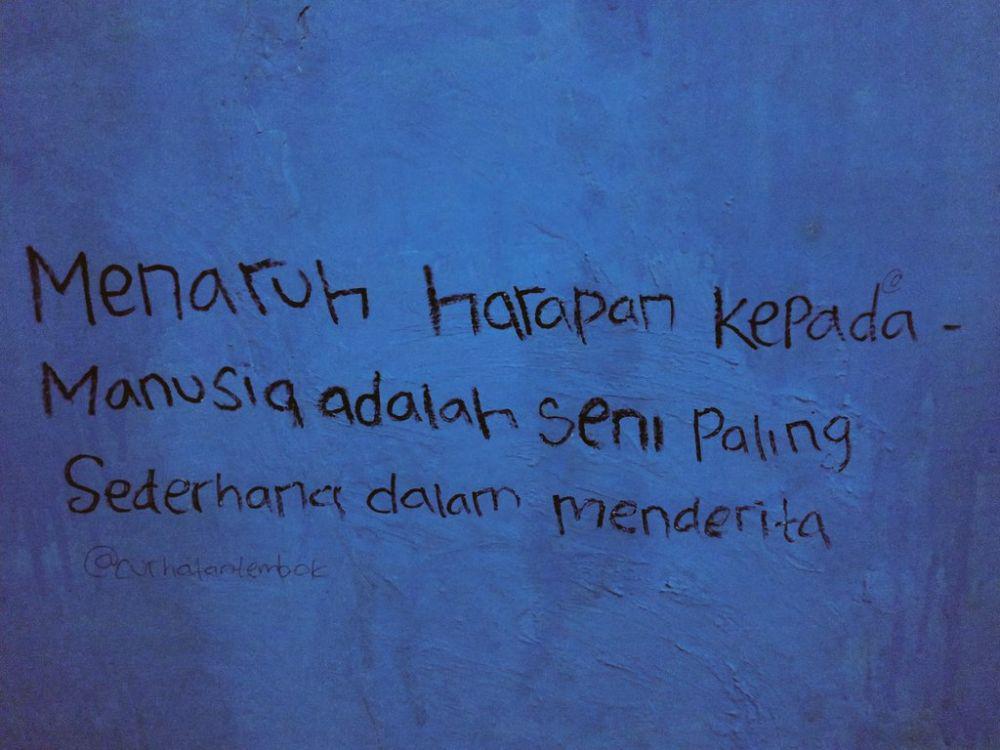 Menaruh harapan kepada -
Manusia adalah seni paling
Sederhana dalam menderita
@curhatantembok